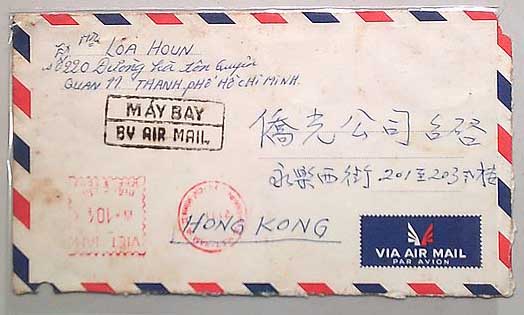 LOA HOUN
220 Đường Hà tôn Quyền
QUAN 11 THANH PHỐ HỒ CHÍ MINH.
MÁY BAY
BY AIR MAIL
僑光公司 台啓
永樂西街 201至203 弍樓
HONG KONG
104
VIET NAM
VIA AIR MAIL
PAR AVION